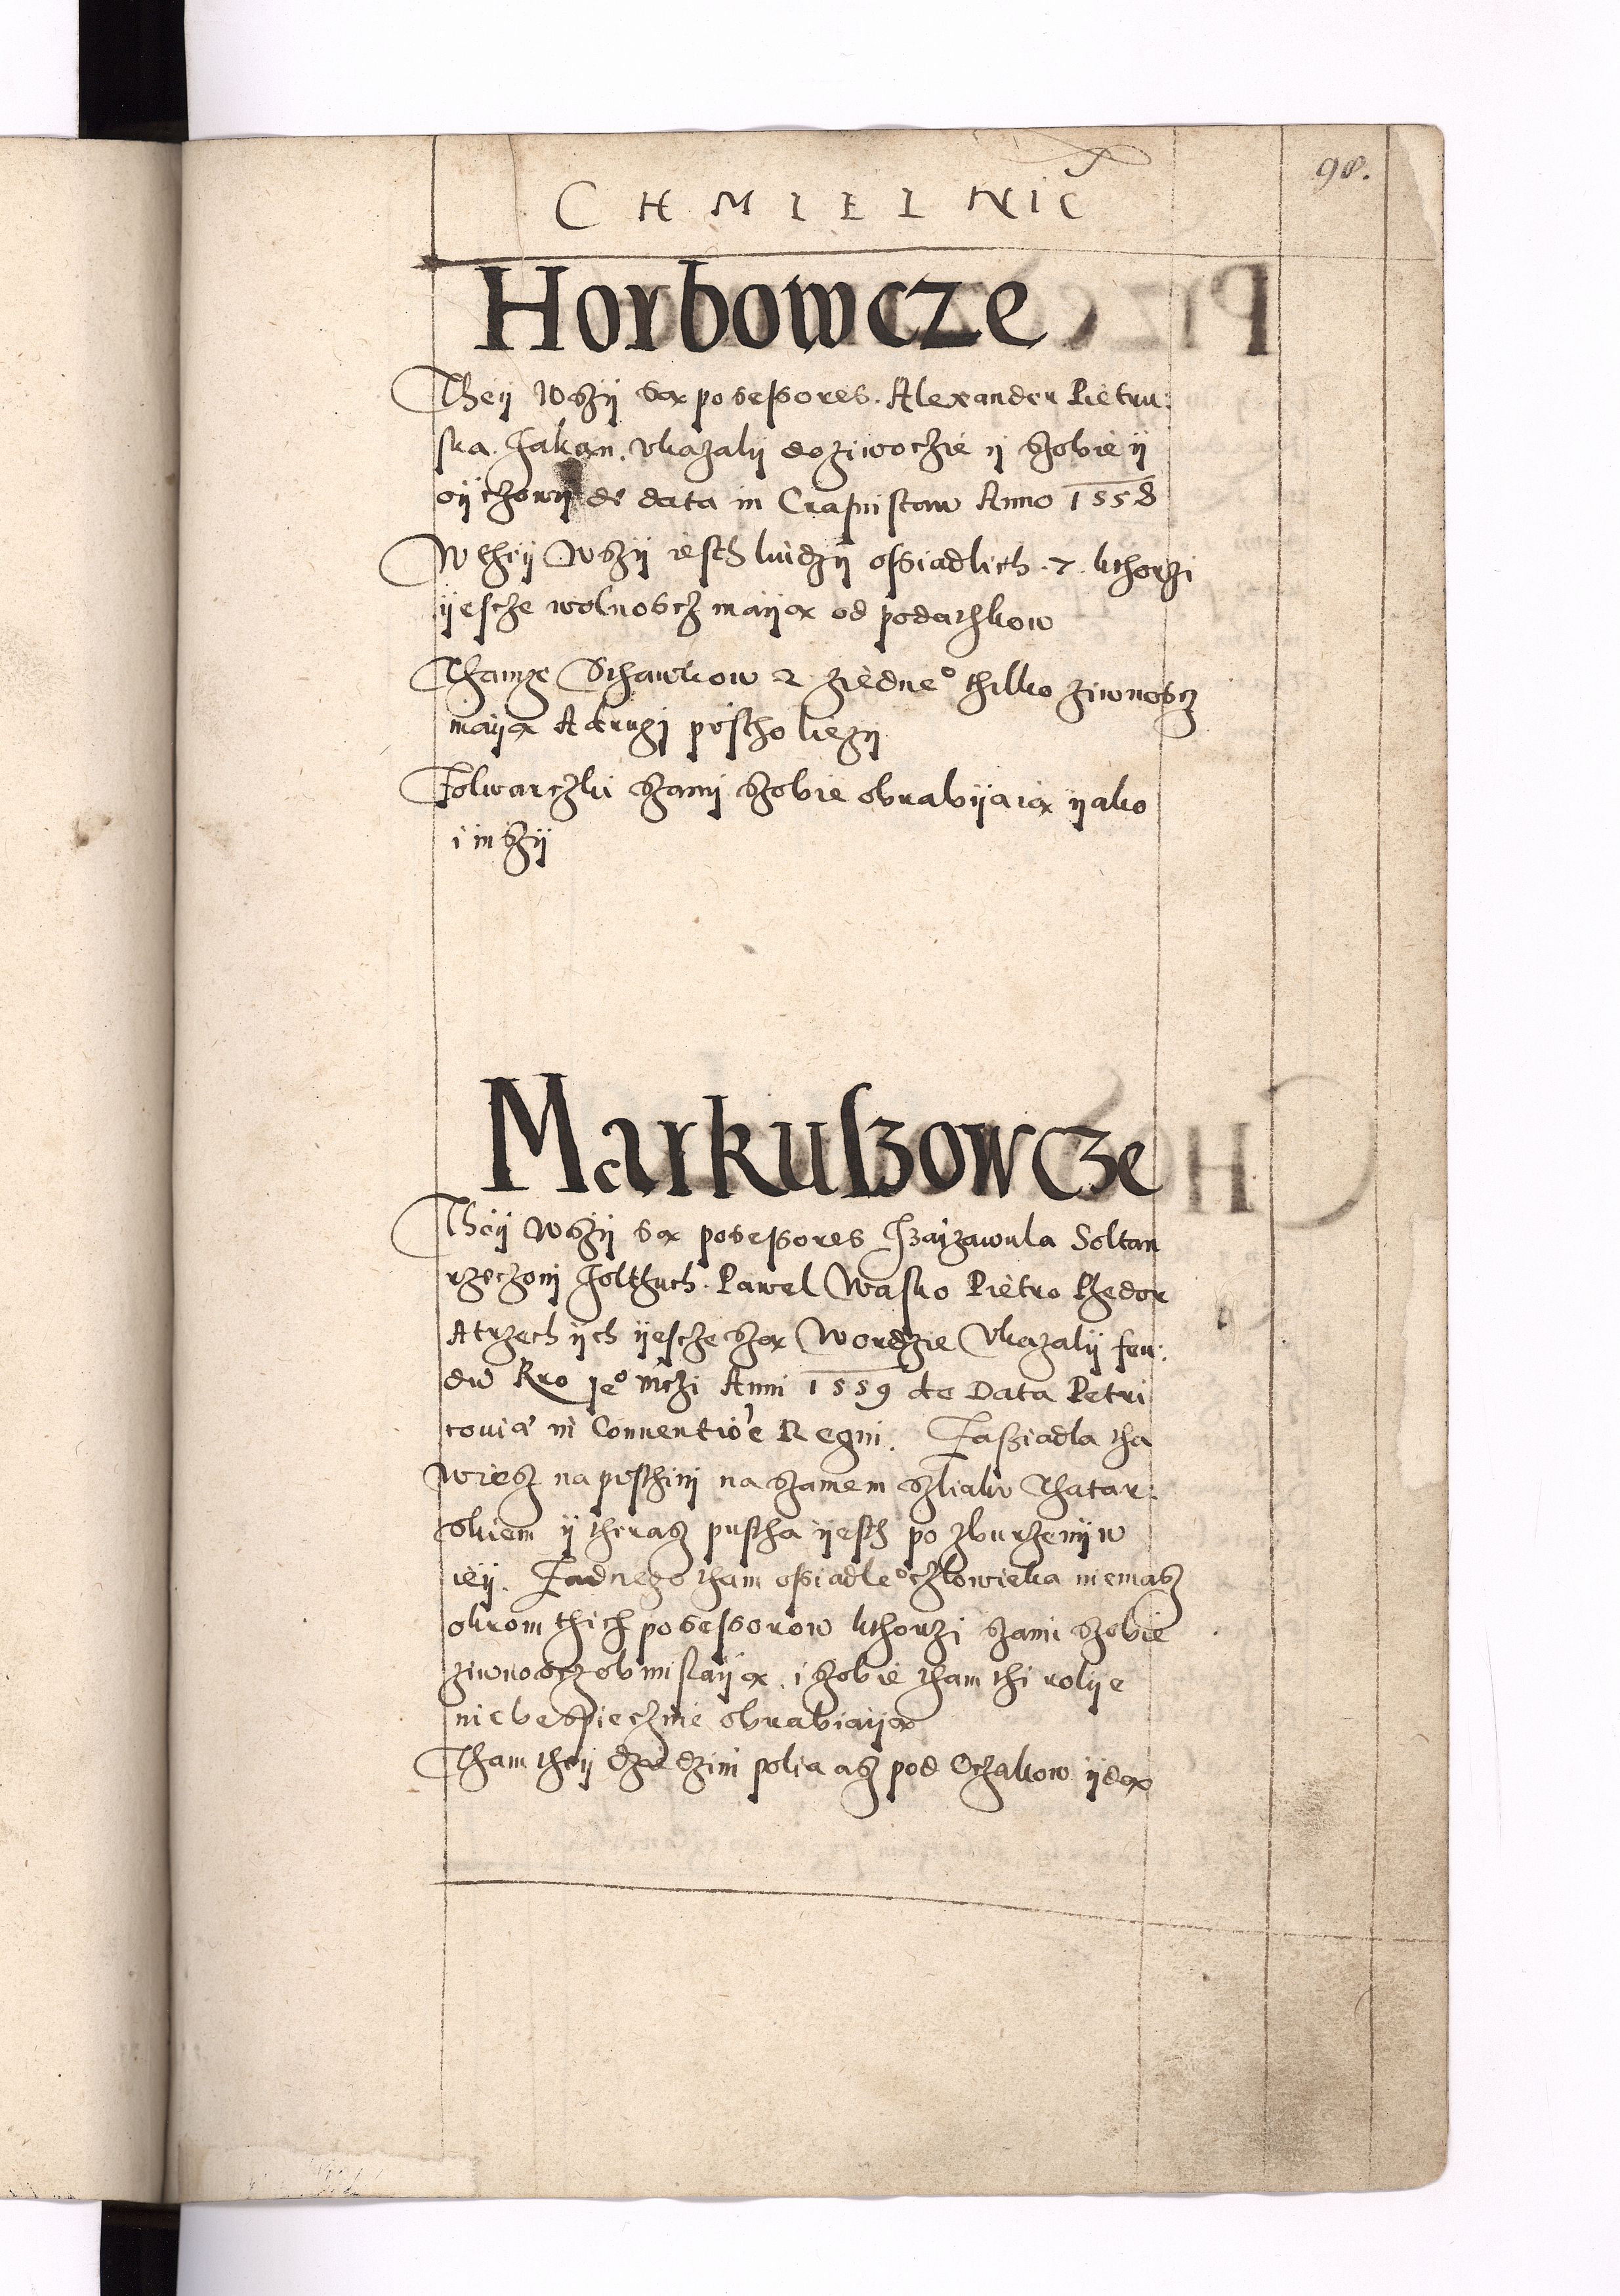 98.
CHMIELNIC
Horbowcze
Theÿ Wszÿ są possessores. Alexander Pietru:
ska. Jakan. vkazalÿ doziwoczie ÿ szobie ÿ
oÿczowÿ de data in Crasnistaw Anno 1558
W theÿ Wszÿ iesth ludzÿ ossiadlich .7. kthorzi
ÿescze wolnoscz maÿą od podathkow
Thamze Sthawkow 2 ziedne° thilko ziwnoscz
maÿą A drugi pustho liezÿ
Folwarczki szamÿ szobie obrabÿaią ÿako
i inszÿ
Markuszowcze
Theÿ Wszÿ są possessores Izaÿzawula Soltan
rzeczonÿ Jolthuch. Pawel Wasko Pietro Fhedor
A trzech ÿch ÿescze szą W ordzie Vkazalÿ feu:
du Kro Je° mczi Anni 1559 de Data Petri
couiæ in Conuentioe Regni. Zasziadla tha
wiesz na pusthinÿ na szamem szliaku Thatar:
skiem ÿ theraz pustha ÿesth po zburzenÿw
ieÿ. Zadnego tham ossiadle° czlowieka niemasz
okrom thich possessorow kthorzi szami szobie
ziwnoscz obmislaÿą. i szobie tham thi rolÿe
niebespiecznie obrabiaÿą
Tham theÿ dziedzini polia asz pod Oczakow ÿdą